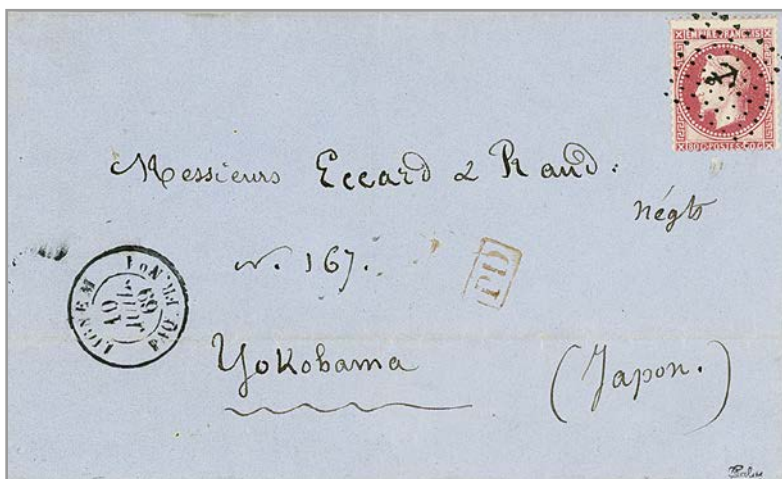 EMPIRE FRANÇAIS
80 C POSTES 80 C
Messieurs Eccard & Rand.
négts
N. 167.
PD
LIGNE N PAQ. FR. No 1
10
JUIL
69
Yokohama
(Japon.)